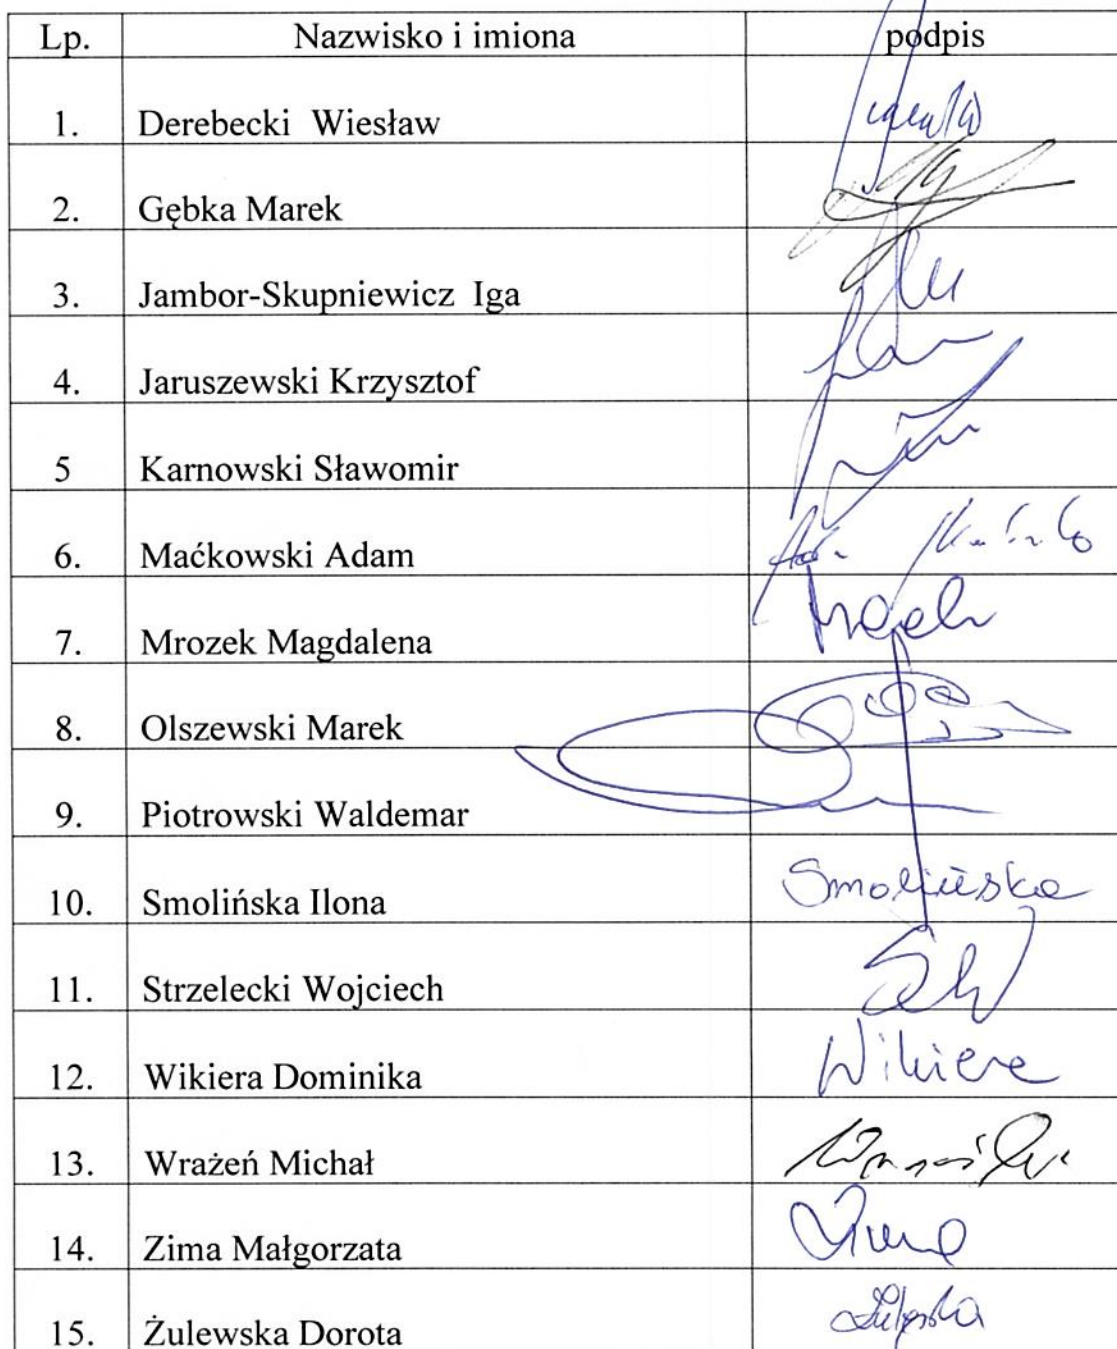 Lp. Nazwisko i imiona podpis
1. Derebecki Wiesław
2. Gębka Marek
3. Jambor-Skupniewicz Iga
4. Jaruszewski Krzysztof
5 Karnowski Sławomir
6. Maćkowski Adam
7. Mrozek Magdalena
8. Olszewski Marek
9. Piotrowski Waldemar
10. Smolińska Ilona Smolińska
11. Strzelecki Wojciech
12. Wikiera Dominika Wikiera
13. Wrażeń Michał
14. Zima Małgorzata
15. Żulewska Dorota